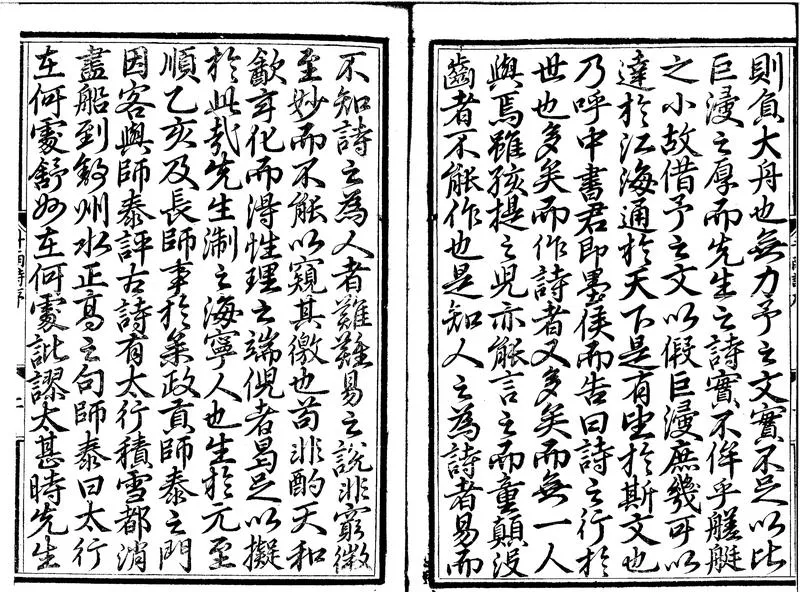 則負大舟也無力予之文實不足以比
巨浸之厚而先生之詩實不侔乎艖艇
之小故借予之文以假巨浸庶幾可以
達於江海通於天下是有望於斯文也
乃呼中書君即墨侯而告曰詩之行於
世也多矣而作詩者又多矣而無一人
與焉雖孩提之兒亦能言之而童顛沒
齒者不能作也是知人之為詩者易而
不知詩之為人者難難易之說非窮微
至妙而不能以窺其徼也苟非酌天和
歙玄化而得性理之端倪者曷足以擬
於此哉先生淛之海寧人也生於元至
順乙亥及長師事於叅政貢師泰之門
因客與師泰評古詩有太行積雪都消
盡船到敘州水正高之句師泰曰太行
在何處舒州在何處訛謬太甚時先生